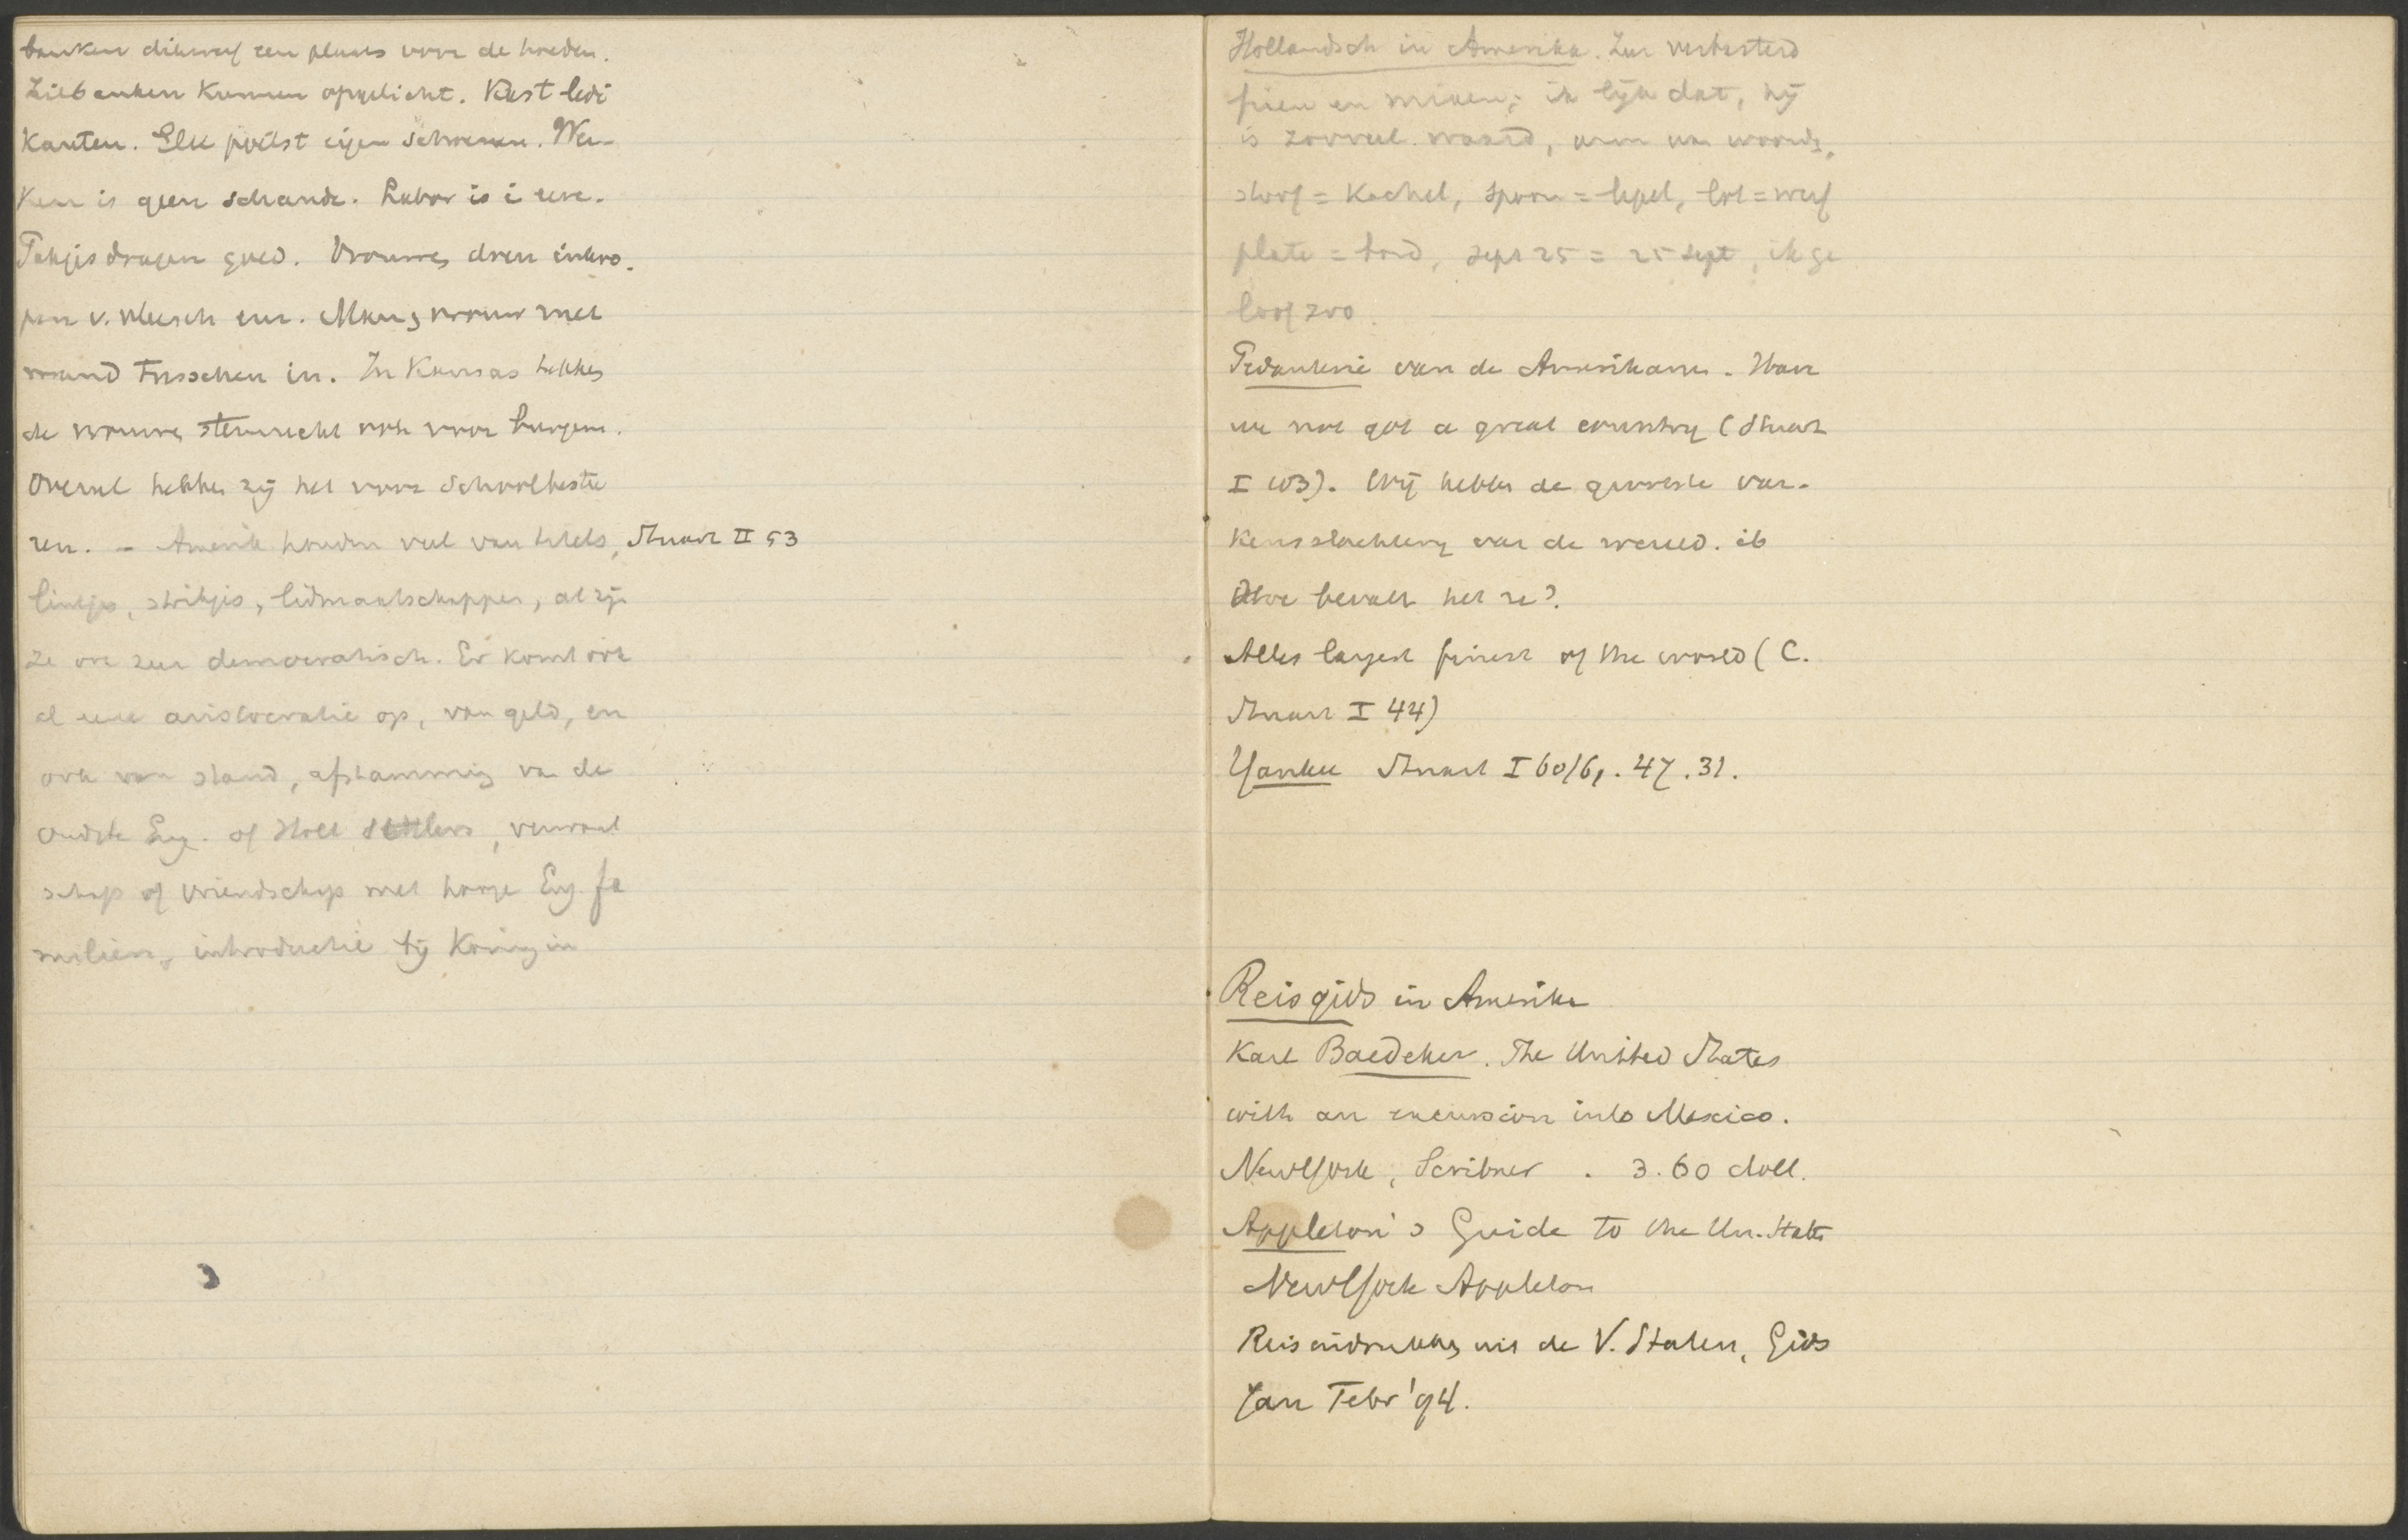 banken dikwerf een plaats voor de hoeden.
Zitbanken kunnen opgelicht. Kast ledi
kanten. Elk poetst eigen schoenen. Wer-
ken is geen schande. Labor is i eere.
Pakjes dragen goed. Vrouwen doen inkoo-
pen v. vleesch enz. Man & vrouw met
mand tusschen in. In Kansas hebben
de vrouwen stemrecht ook voor burgem.
Overal hebben zij het voor schoolbestu
ren. - Amerik houden veel van titels, Stuart II 53
lintjes, strikjes, lidmaatschappen, al zijn
ze ook zeer democratisch. Er komt ook
al eene aristocratie op, van geld, en
ook van stand, afstamming van de
oudste Eng. of Holl settlers, verwant
schap of vriendschap met hooge Eng. fa
milien, introductie bij Koningin
Hollandsch in Amerika. Zeer verbasterd
ik lijk dat, hij
is zooveel waard,
stoof = Kachel, spoon = lepel, lot = werf
plate = bord, Sept 25 = 25 Sept, ik ge
loof zoo.
Pedanterie van de Amerikanen. Have
we not got a great country (Stuart
I 103). Wij hebben de grootste var-
kensslachterij van de wereld. ib
Hoe bevalt het ze?
Alles largest finest of the world (C.
Stuart I 44)
Yankee Stuart I 60/61. 47. 31.
Reisgids in Amerika
Karl Baedeker. The United States
with an excursion into Mexico.
NewYork, Scribner. 3.60 doll.
Appleton's Guide to the Un. States
NewYork Appleton
Reisindrukken uit de V. Staten, Gids
Jan Febr '94.